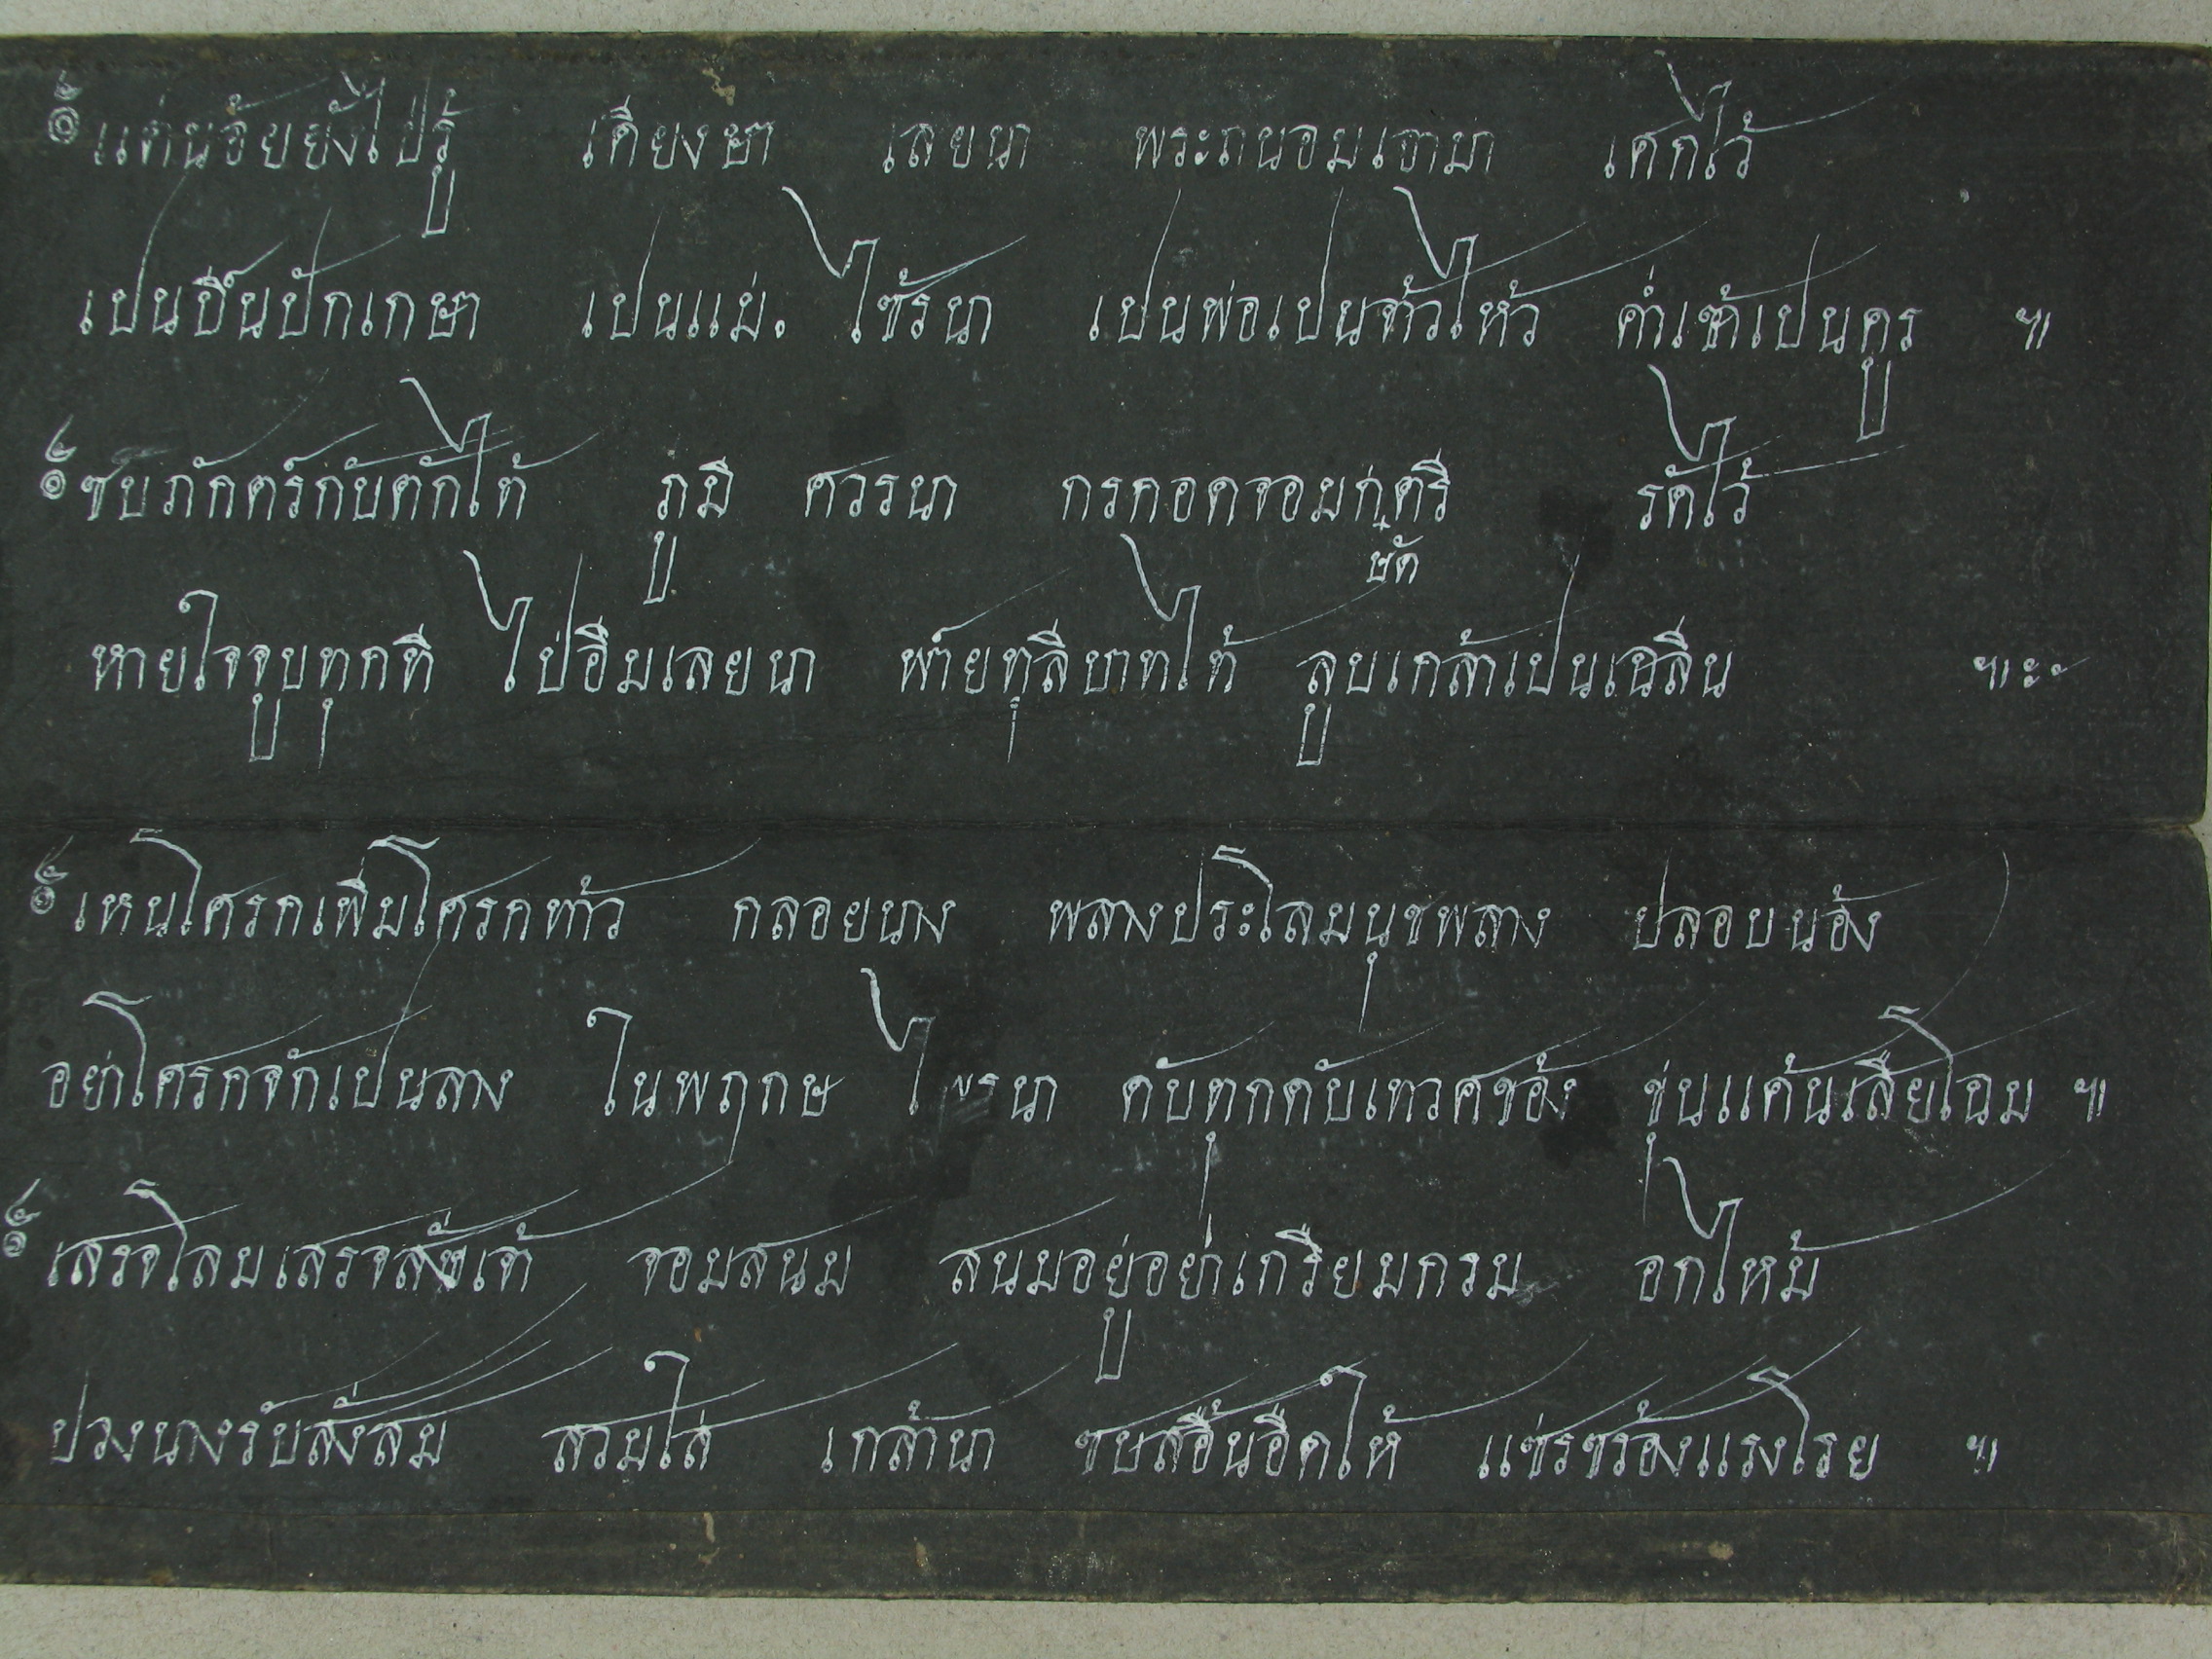 ๏ แต่นอ้ยยังไป่รู้ เดียงษา เลยนา พระถนอมเอามา เศกไว้
เปนปิ่นปักเกษา เปนแม่. ไซ้รนา เปนพ่อเปนจ้าวไห้ว ค่ำเช้าเปนคูร ฯ
๏ ซบภักตร์กับตักไต้ ภูมี ศวรนา กรกอดจอมกระษัตรี รัดไว้
หายใจจูบทุกที ไป่อิ่มเลยนา พ่ายทุลีบาทไต้ ลูบเกล้าเปนเฉลิ่ม ฯะ
๏ เหนโศรกเพิ่มโศรกท้าว กลอยนาง พลางประโลมนุชพลาง ปลอบนอ้ง
อย่าโศรกจักเปนลาง ในพฤกษ ไพรนา ดับทุกดับเทวศขอ้ง ขุ่นแค้นเสียโฉม ฯ
๏ เสรจโลมเสรจสั่งเจ้า จอมสนม สนมอยู่อย่าเกรียมกรม อกไหม้
ปวงนางรับสั่งสม สวมใส่ เกล้านา ซบสอื้นอืดไห้ แซ่รซร้องแรงโรย ฯ